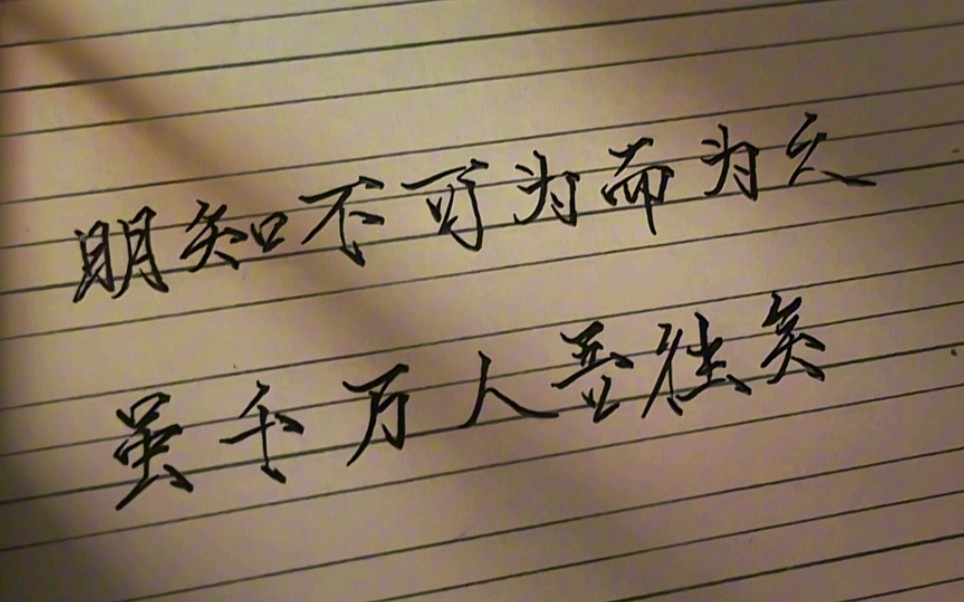 明知不可为而为之
虽千万人吾往矣